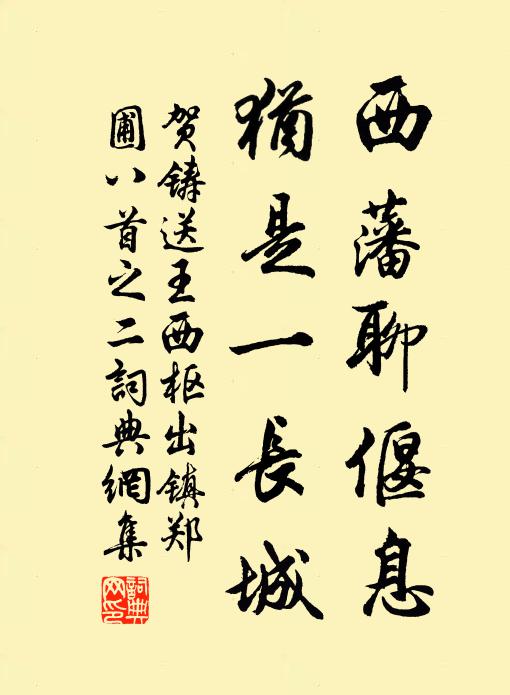 西藩聊偃息
猶是一長城
贺鑄送王西枢出鎮郑
圃八首之二詞典網集
詞典网印